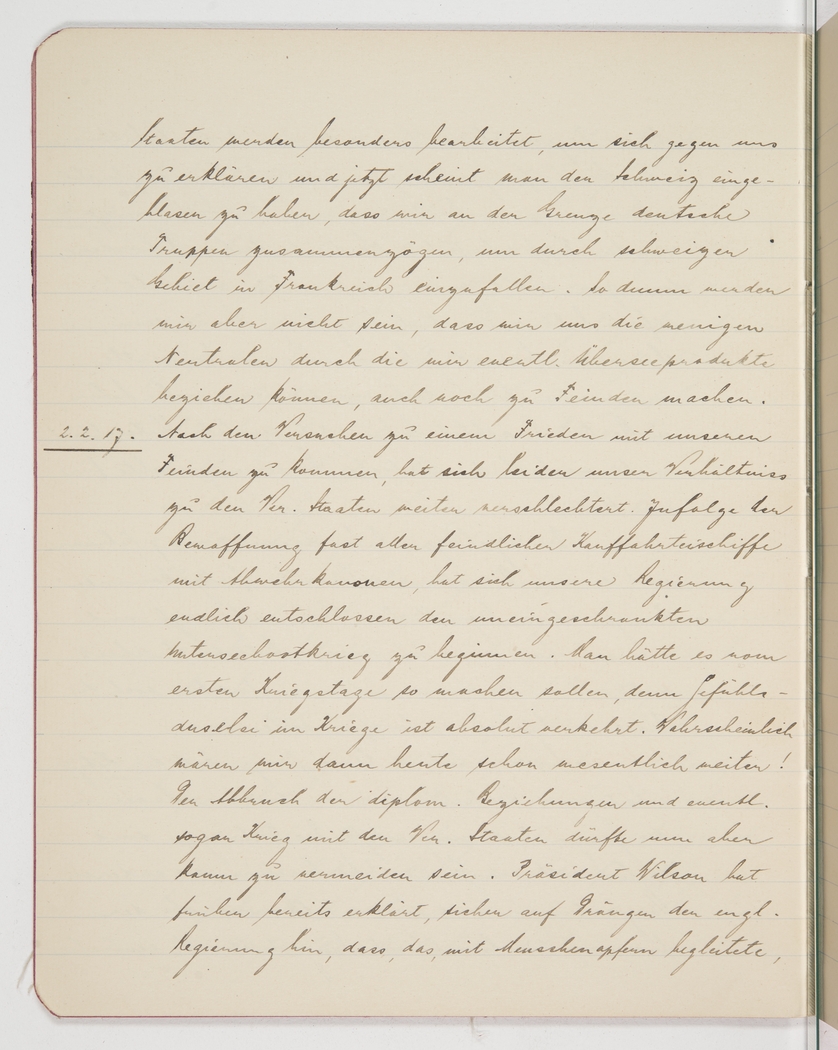 Staaten werden besonders bearbeitet, um sich gegen uns
zu erklären und jetzt scheint man der Schweiz einge-
blasen zu haben, dass wir an der Grenze deutsche
Truppen zusammenzögen, um durch schweizer
Gebiet in Frankreich einzufallen. So dumm werden
wir aber nicht sein, dass wir uns die wenigen
Neutralen durch die wir eventl. Überseeprodukte
beziehen können, auch noch zu Feinden machen.
2.2.17. Nach den Versuchen zu einem Frieden mit unseren
Feinden zu kommen, hat sich leider unser Verhältniss
zu den Ver. Staaten weiter verschlechtert. Infolge der
Bewaffnung fast aller feindlicher Kauffahrteischiffe
mit Abwehrkanonen, hat sich unsere Regierung
endlich entschlossen den uneingeschränkten
Unterseebootkrieg zu beginnen. Man hätte es vom
ersten Kriegstage so machen sollen, denn Gefühls-
duselei im Kriege ist absolut verkehrt. Wahrscheinlich
wären wir dann heute schon wesentlich weiter!
Der Abbruch der diplom. Beziehungen und eventl.
sogar Krieg mit den Ver. Staaten dürfte nun aber
kaum zu vermeiden sein. Präsident Wilson hat
früher bereits erklärt, sicher auf Drängen der engl.
Regierung hin, dass, das, mit Menschenopfern begleitete,